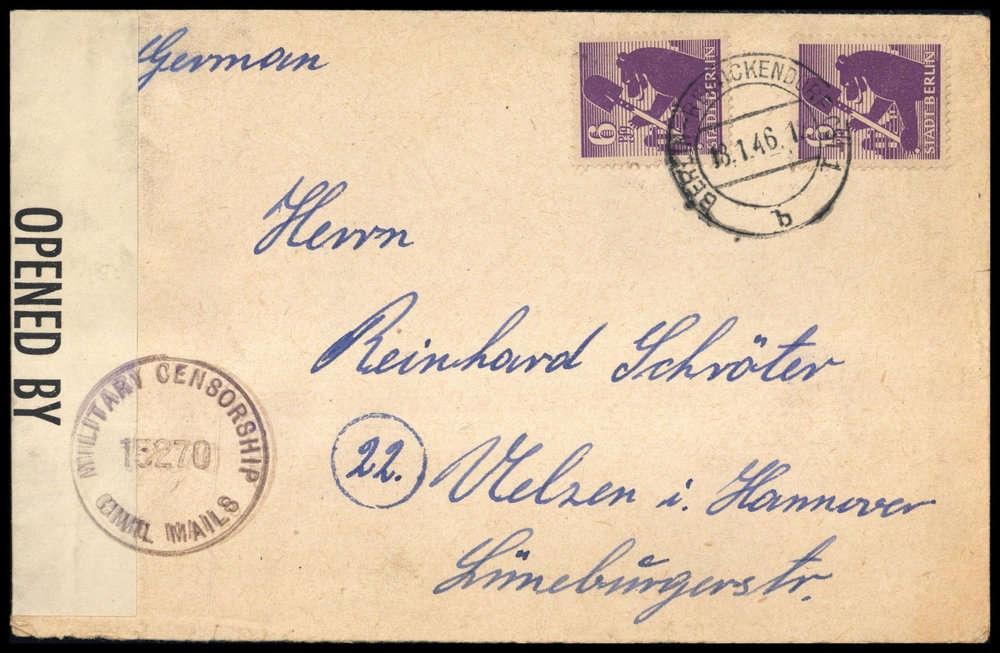 German
6 Pf
STADT BERLIN
6
STADT BERLIN
BERLIN-REINICKENDORF 1
18.1.46.1
b
Herrn
Reinhard Schröter
22. Uelzen i. Hannover
Lüneburgerstr.
OPENED BY
MILITARY CENSORSHIP
15270
CIVIL MAILS